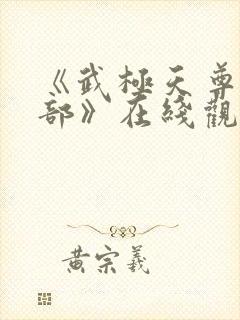 《武極天尊
部》在綫觀
黄宗羲